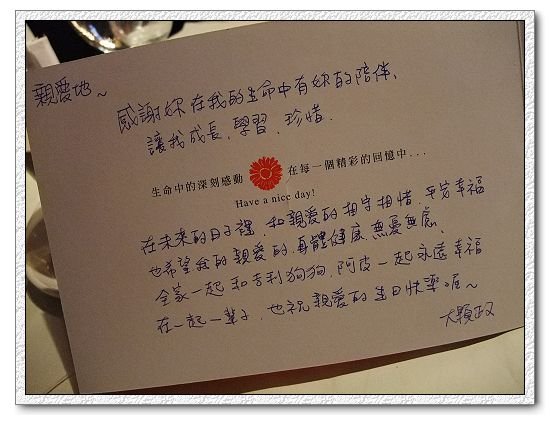 親愛地~
感謝妳在我的生命中有妳的陪伴、
讓我成長、學習、珍惜.
生命中的深刻感動 在每一個精彩的回憶中...
Have a nice day!
在未來的日子裡,和親愛的相守相惜.平安幸福
也希望我的親愛的.身體健康.無憂無慮、
全家一起和吉利狗狗.阿皮一起永遠幸福
在一起一輩子、也祝親愛的生日快樂喔~
大顆政